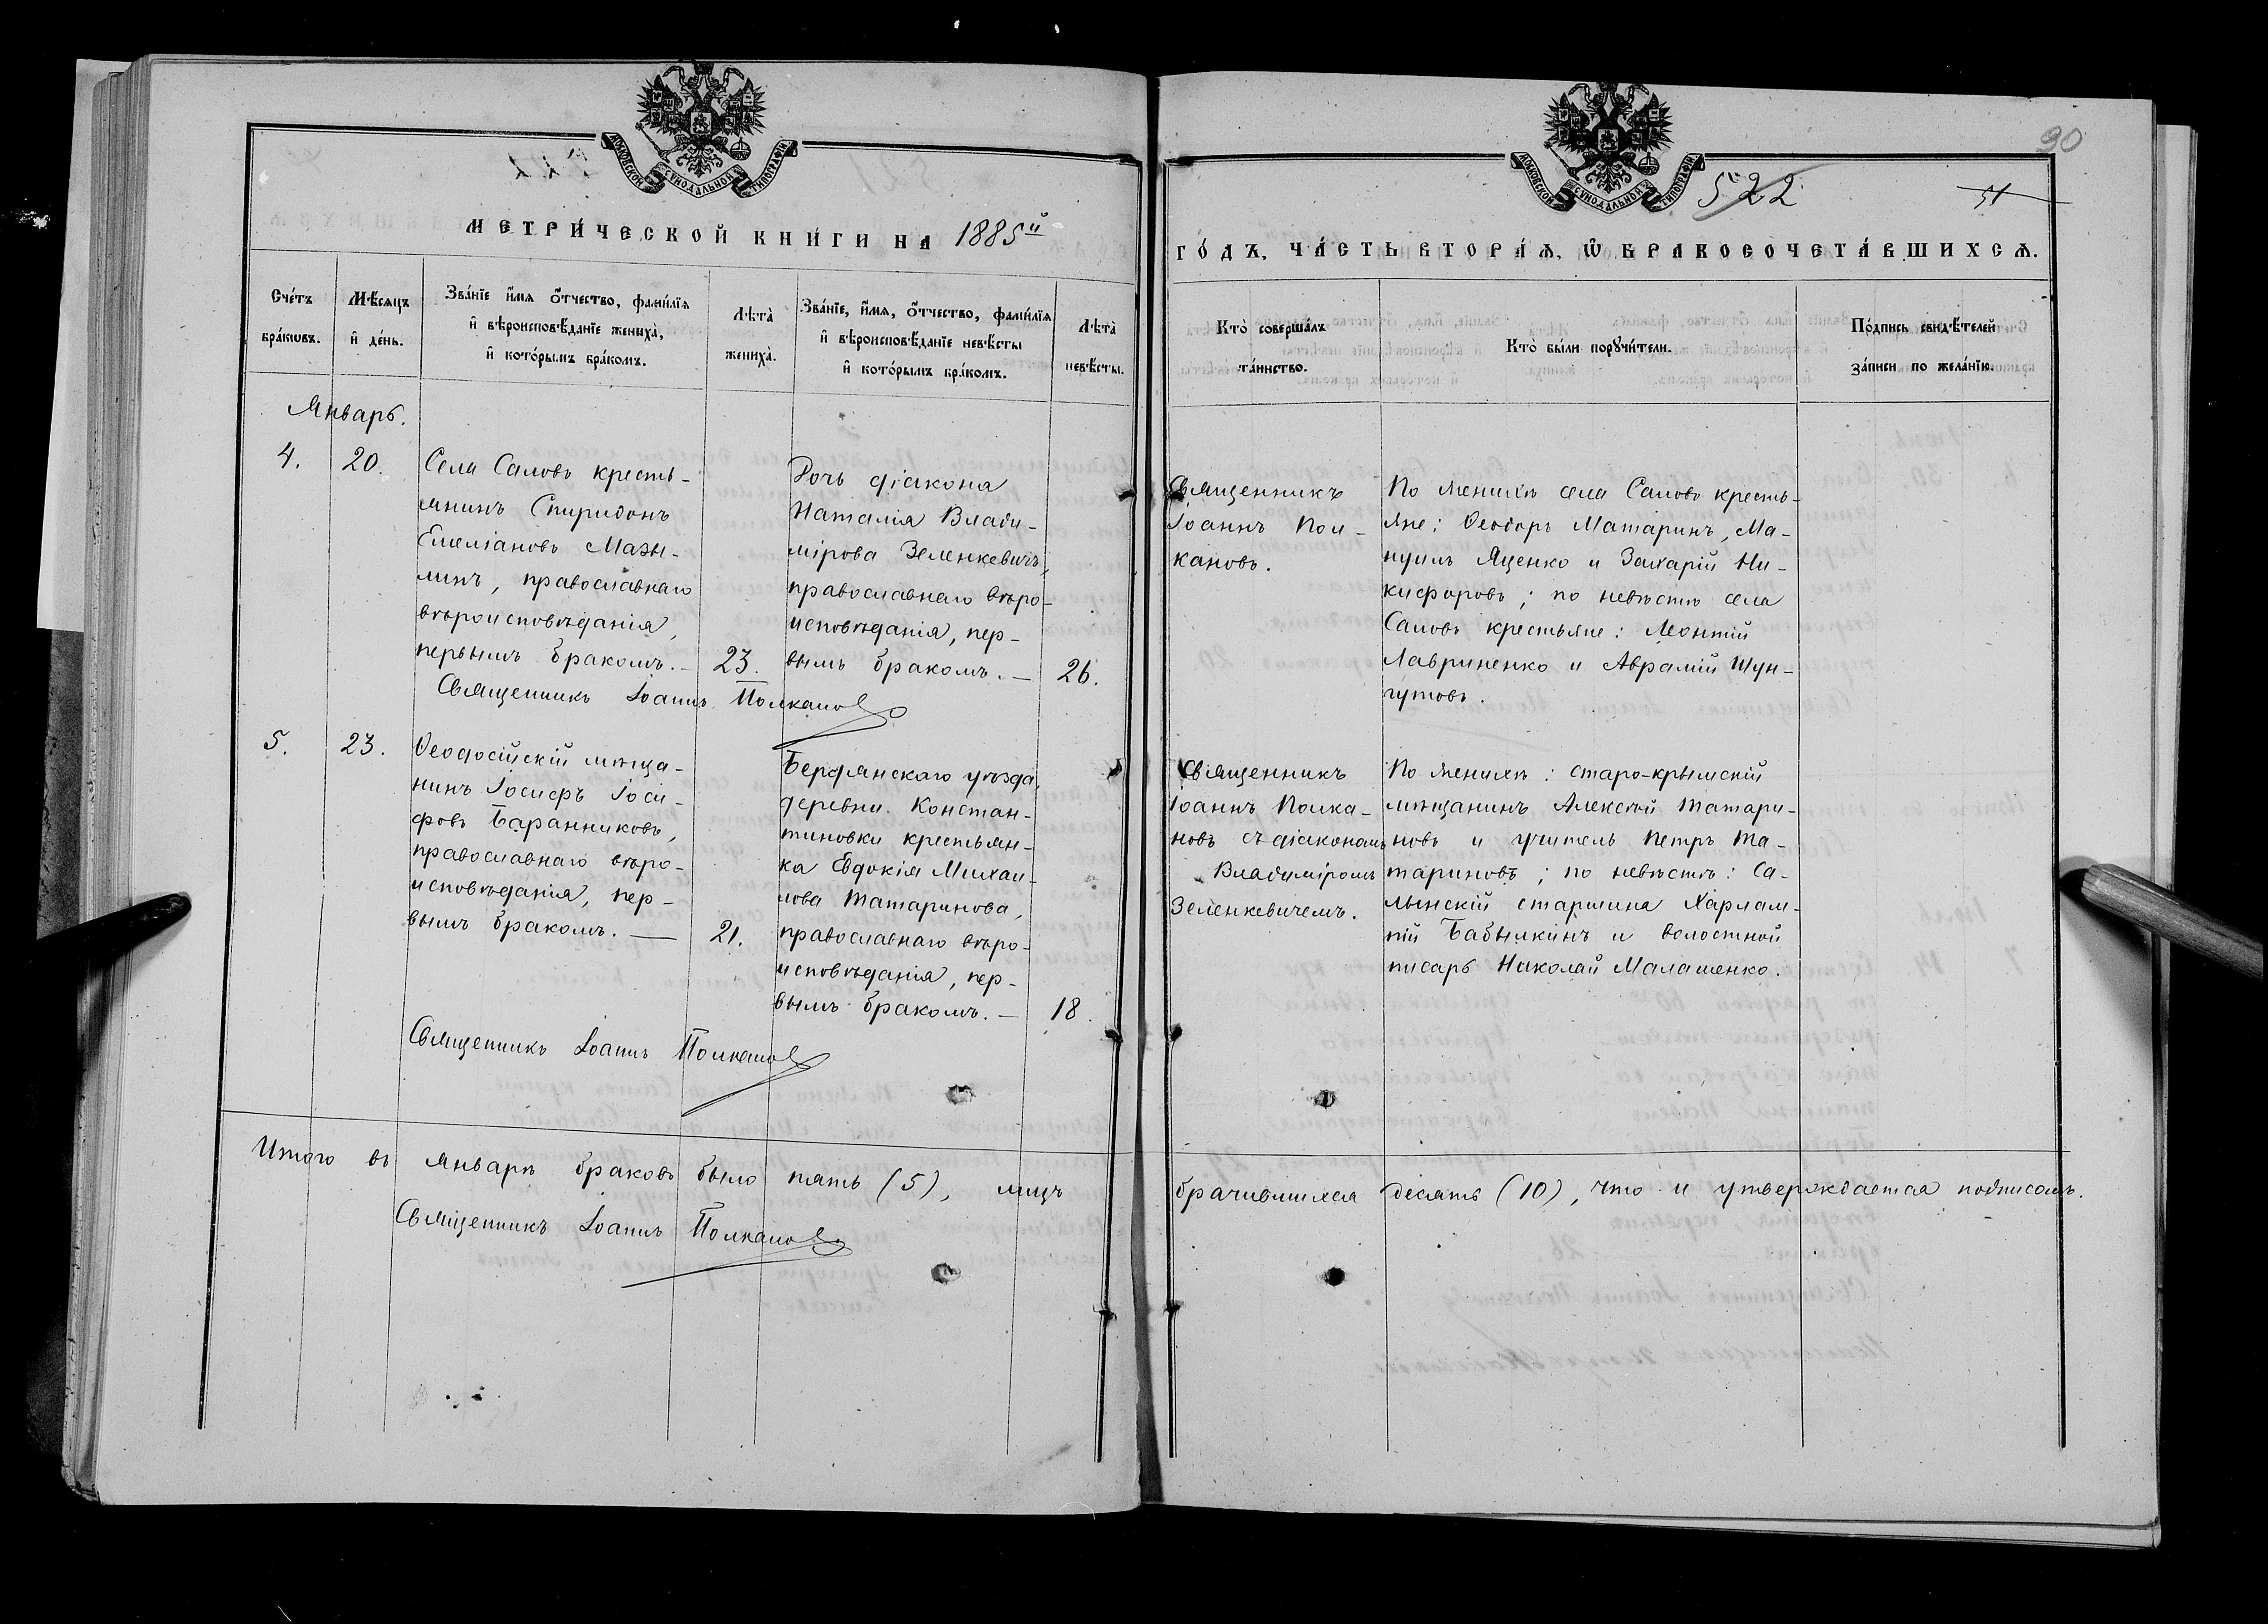 МОСКОВСКОЙ СѴНОДАЛЬНОЙ ТИПОГРАФІИ
МЕТРИ́ЧЕСКОЙ КНИ́ГИ НА 1885й
Сче́тъ бра́ковъ.
Мѣ́сяцъ и҆ де́нь.
Зва́нїе и҆́мя ѻ҆́тчество, фами́лїя
и҆ вѣроисповѣ́данїе жениха̀,
и҆ кото́рымъ бра́комъ.
Лѣта̀ жениха̀.
Зва́нїе, и҆́мя, ѻ҆́тчество, фами́лїя
и҆ вѣроисповѣ́данїе невѣ́сты
и҆ кото́рымъ бра́комъ.
Лѣта̀ невѣ́сты.
Январь.
4.
20.
Села Саловъ кресть-
янинъ Спиридонъ
Емеліановъ Мазы-
линъ, православнаго
вѣроисповѣданія,
первымъ бракомъ.—
23.
Дочь діакона
Наталія Влади-
мірова Зеленкевичъ,
православнаго вѣро-
исповѣданія, пер-
вымъ бракомъ.—
26.
Священникъ Іоаннъ Полкановъ
5.
23.
Ѳеодосійскій мѣща-
нинъ Іосифъ Іоси-
фовъ Баранниковъ,
православнаго вѣро-
исповѣданія, пер-
вымъ бракомъ.—
21.
Бердянскаго уѣзда,
деревни Констан-
тиновки крестьян-
ка Евдокія Михаи-
лова Татаринова,
православнаго вѣро-
исповѣданія, пер-
вымъ бракомъ.—
18.
Священникъ Іоаннъ Полкановъ
Итого въ январѣ браковъ было пять (5), лицъ
Священникъ Іоаннъ Полкановъ
90
МОСКОВСКОЙ СѴНОДАЛЬНОЙ ТИПОГРАФІИ
522
51
ГО́ДЪ, ЧА́СТЬ ВТОРА́Я, Ѽ БРАКОСОЧЕТА́ВШИХСЯ.
Кто̀ соверша́лъ
та́инство.
Кто̀ бы́ли порꙋчи́тели.
По́дпись свидѣ́телей
за́писи по жела́нїю.
Священникъ
Іоаннъ Пол-
кановъ.
По женихѣ села Саловъ кресть-
яне: Ѳеодоръ Матаринъ, Ма-
нуилъ Яценко и Захарій Ни-
кифоровъ; по невѣстѣ села
Саловъ крестьяне: Леонтій
Лавриненко и Аврамій Шун-
гутовъ.
Священникъ
Іоаннъ Полка-
новъ съ діакономъ
Владиміромъ
Зеленкевичемъ.
По женихѣ: старо-крымскій
мѣщанинъ Алексѣй Татари-
новъ и учитель Петръ Та-
тариновъ; по невѣстѣ: Са-
лынскій старшина Харлам-
пій Бабылкинъ и волостной
писарь Николай Малашенко.
брачившихся десять (10), что и утверждается подписомъ.